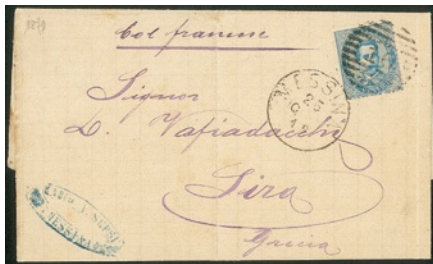 1879
Col franum
MESSINA
26
Signor
D. Vafiadacchi
Sira
Grecia
MESSINA